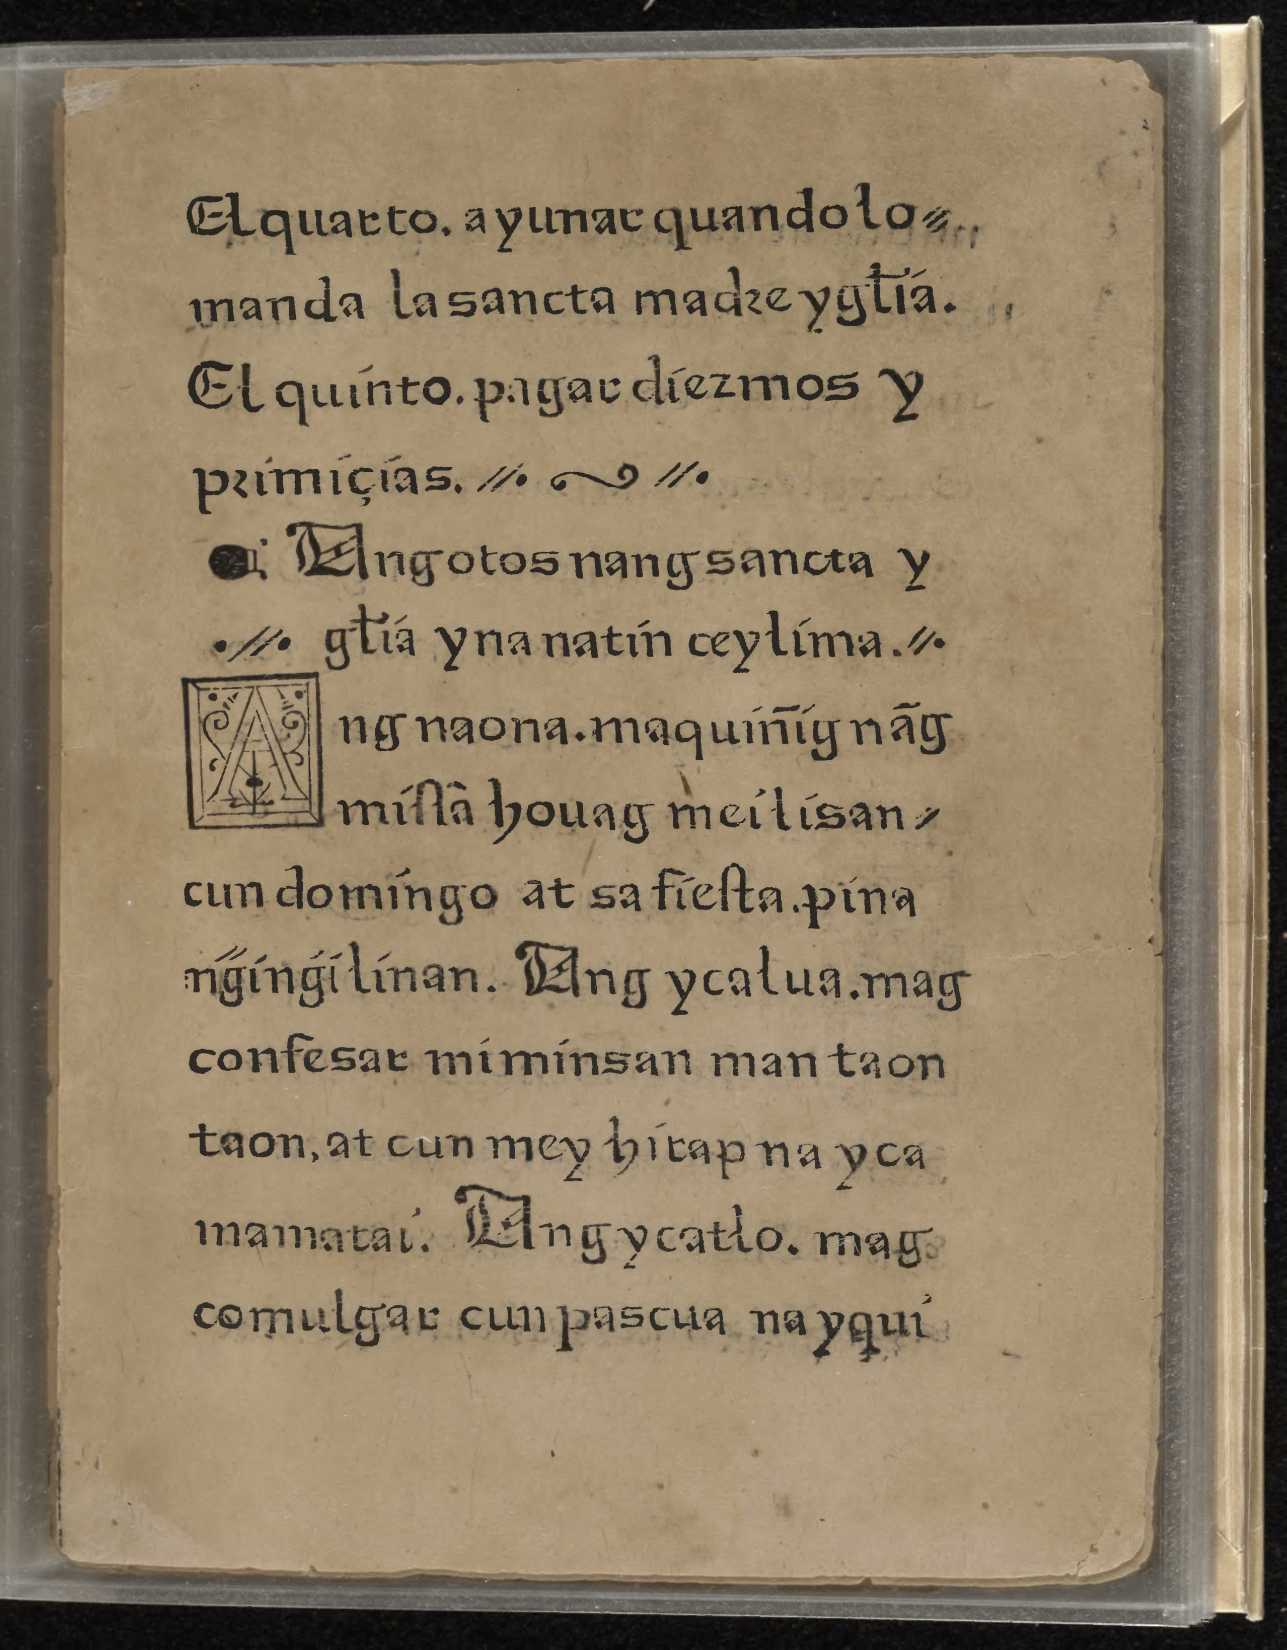 El quarto. ayunar quando lo
manda la sancta madre ygłia.
El quinto. pagar diezmos y
primiçias.
Ang otos nang sancta y
głia yna natin ceylima.
Ang naona. maquiñig nãg
missã houag meilisan
cun domingo at sa fiesta. pina
ng̃ing̃ilinan. Ang ycalua. mag
confesar miminsan man taon
taon, at cun mey hirap na yca
mamatai. Ang ycatlo. mag
comulgar cun pascua na yqui